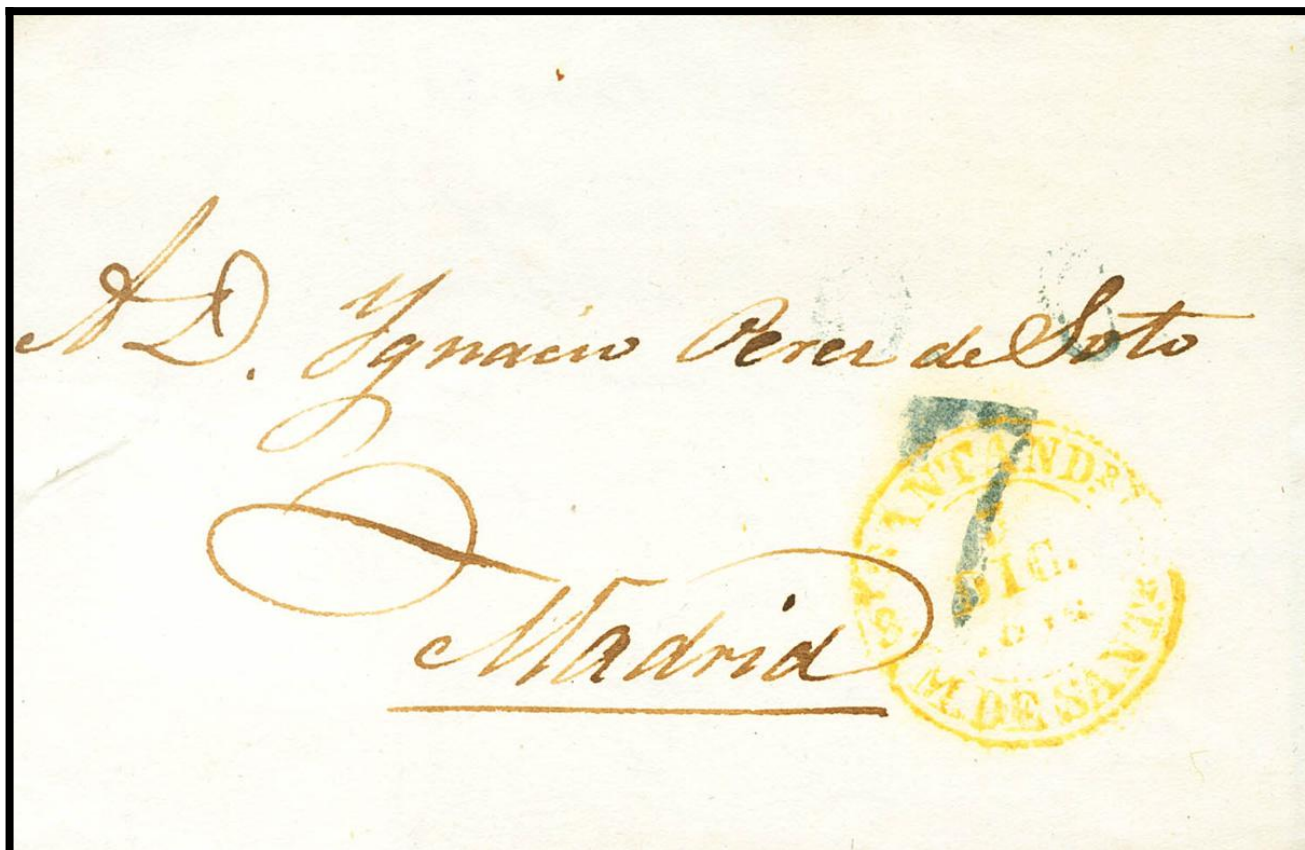 A D. Ygnacio Perez de Soto
Madrid
SANTANDER
DIC.
M. DE SANTR